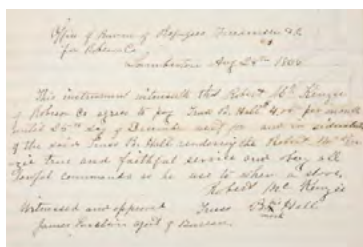 Office of Bureau of Refugees, Freedmen &c
for Robeson Co.
Lumberton Aug 28th 186
This instrument that Robert McKenzie
of Robeson Co agrees to pay Truss B. Hall 4.00 per month
until 25th day of December next for and in consideration
of the said Truss B. Hall rendering the Robert McKen
zie true and faithful service and obey all
lawful commands as he use to when a slave.
Robert McKenzie
Witnessed and approved Truss B. Hall
James agent of Bureau. mark